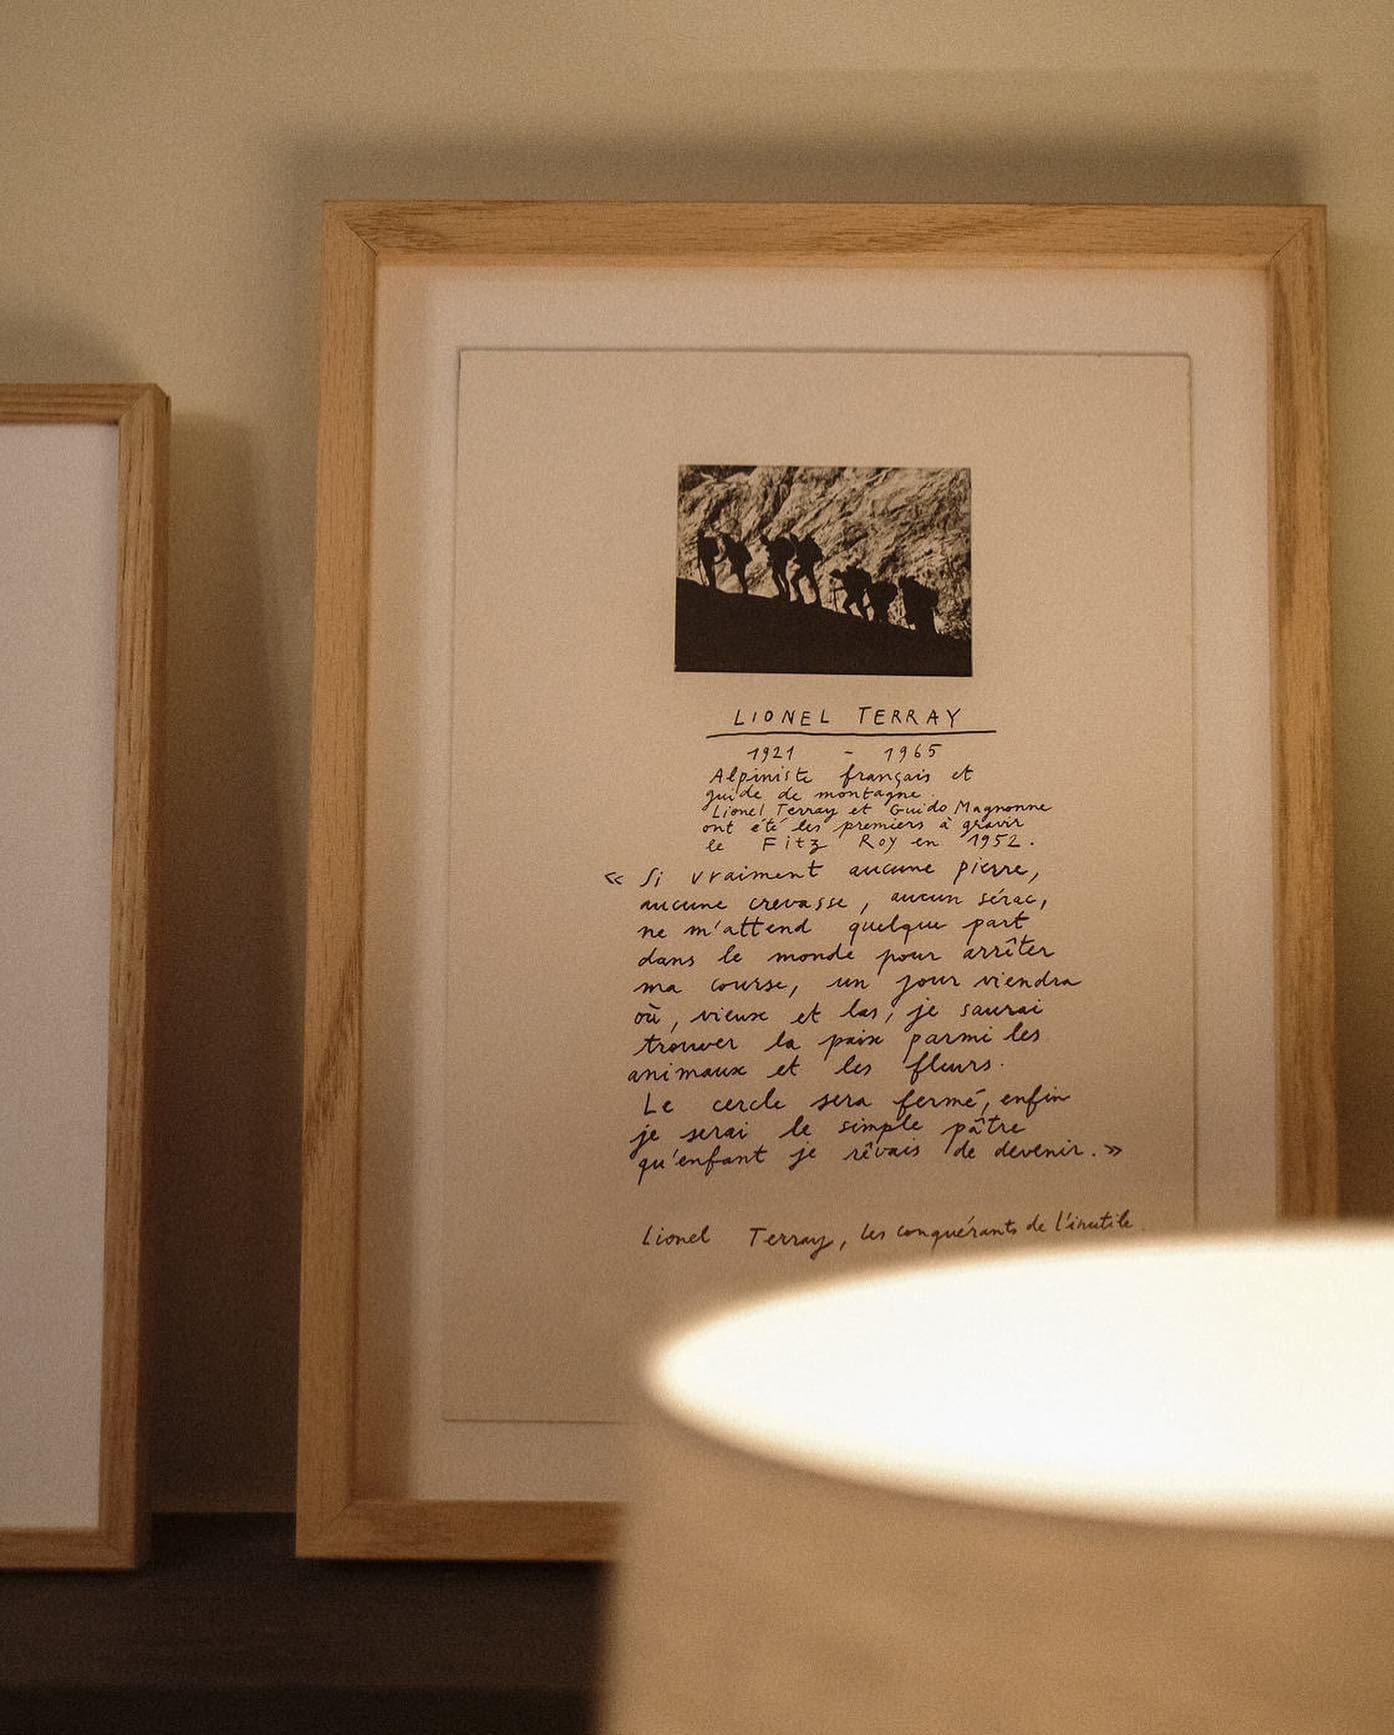 LIONEL TERRAY
1921 - 1965
Alpiniste français et
guide de montagne.
Lionel Terray et Guido Magnonne
ont été les premiers à gravir
le Fitz Roy en 1952.
« Si vraiment aucune pierre,
aucune crevasse, aucun sérac,
ne m'attend quelque part
dans le monde pour arrêter
ma course, un jour viendra
où, vieux et las, je saurai
trouver la paix parmi les
animaux et les fleurs.
Le cercle sera fermé, enfin
je serai le simple pâtre
qu'enfant je rêvais de devenir. »
Lionel Terray, les conquérants de l'inutile.